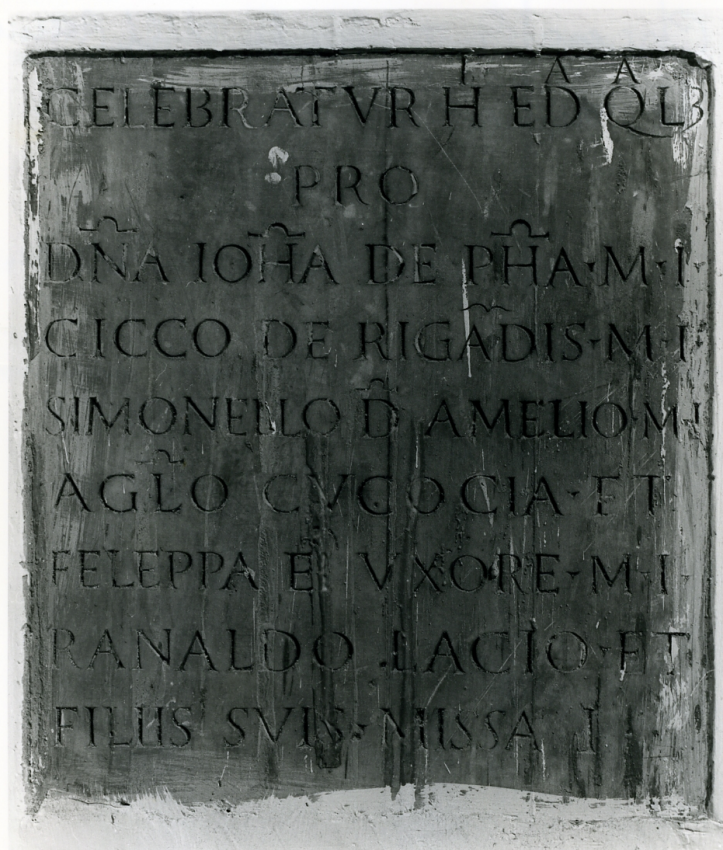 CELEBRATVR H ED QLB
PRO
DÑA IOHA DE PHA·M·I
CICCO DE RIGADIS·M·I
SIMONELLO D AMELIO·M·I
AGLO CVCOCIA·ET
FELEPPA EI VXORE·M·I
RANALDO LACIO·ET
FILIIS SVIS·MISSA I